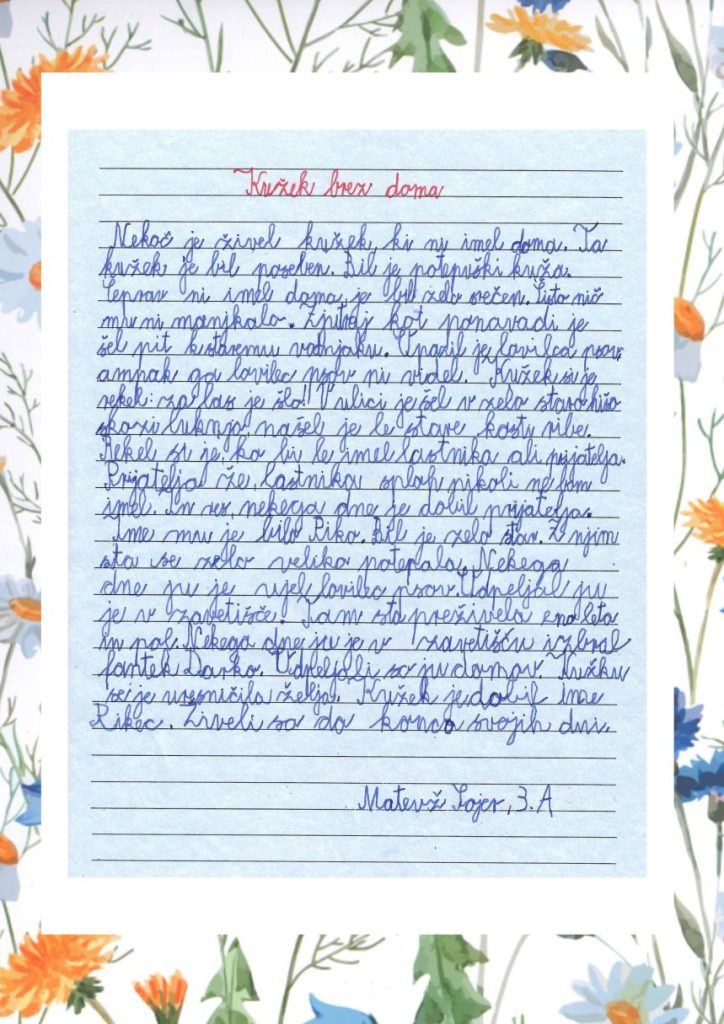 Kužek brez doma
Nekoč je živel kužek, ki ni imel doma. Ta
kužek je bil poseben. Bil je potepuški kuža.
Čeprav ni imel doma, je bil zelo srečen. Čisto nič
mu ni manjkalo. Zjutraj kot ponavadi je
šel pit k staremu vodnjaku. Opazil je lovilca psov,
ampak ga lovilec psov ni videl. Kužek si je
rekel: za las je šlo! V ulici je šel v zelo staro hišo
skozi luknjo našel je le stare kosti ribe.
Rekel si je: ko bi le imel lastnika ali prijatelja.
Prijatelja že, lastnika sploh nikoli ne bom
imel. In res, nekega dne je dobil prijatelja.
Ime mu je bilo Piko. Bil je zelo star. Z njim
sta se zelo veliko potepala. Nekega
dne ju je ujel lovilec psov. Odpeljal ju
je v zavetišče. Tam sta preživela eno leta
in pol. Nekega dne ju je v zavetišču izbral
fantek Darko. Odpeljali so ju domov. Kužku
se je uresničila želja. Kužek je dobil ime
Pikec. Živeli so do konca svojih dni.
Matevž Sojer, 3. A